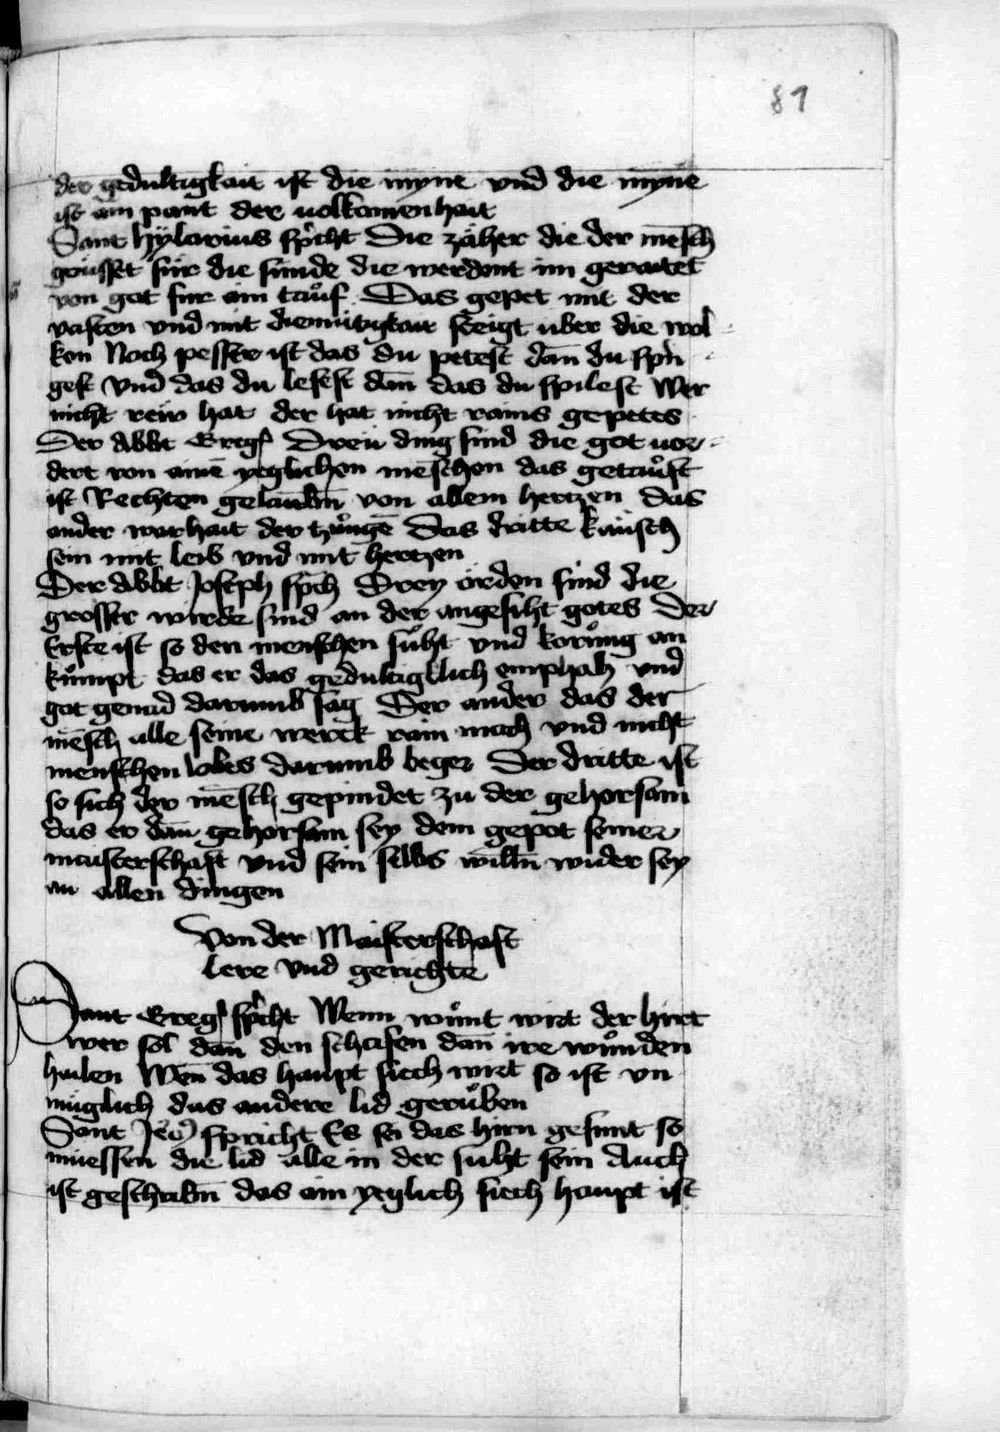 81
der gedultigkait ist die mynt vnd die myne
ist ain pant der uolkomenhait
Sant hÿlarius spͥcht Die zäher die der mēsch
geüsset für die sünde die werdent im geraitet
von got fur ain tauͦf Das gepet mit der
vasten vnd mit diemütigkait steigt uber die wol
ken Noch pesser ist das du petest dan̄ du spri
gest Vnd das du lesest dan̄ das du spilest Wer
nicht rew hat der hat nicht rains gepetes
Der Abbt Greg Dreü ding sind die got uor
dert von aine yeglichen mēschen das getauͦft
ist Rechten gelaubn̄ von allem hertzen das
ander warhait der tzuͦnge Das dritte käusch
sein mit leib vnd mit hertzen
Der Abbt Joseph spch Drey örden sind die
grosser wirde sind an der angesiht gotes Der
Erste ist so den menschen suͦht vnd koruͦng an
kuͦmpt das er das gedultigklich emphah vnd
got genad darumb sag Der ander das der
mēsch alle seine werck rain mach vnd nicht
menschen lobes darumb beger Der dritte ist
so sich der mēsch gepindet zu der gehorsam
das er dan̄ gehorsam sey dem gepot seiner
maisterschaft vnd sein selbs willn̄ wider sey
an allen dingen
Von der Maisterschaft
lere vnd gerichte
Sant Greg spͥcht Wenn wuͦnt wirt der hirt
wer sol dan̄ den schafen dan̄ ire wuͦnden
hailen Wen̄ das haupt siech wirt so ist vn
müglich das andere lid geruͦben
Sant Jeo spricht Es sei das hirn gesunt so
müessen die lid alle in der suht sein Auch
ist geschribn̄ das ain yeglich siech haupt ist